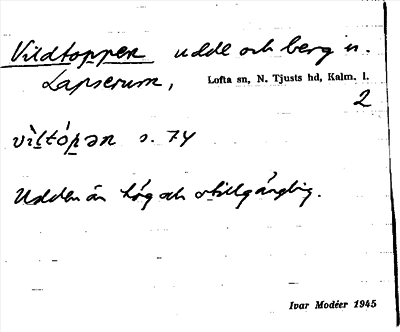 Vildtoppen udde och berg n.
Lapserum, Lofta sn, N. Tjusts hd, Kalm. l.
2
vìltópən s. 74
Udden är hög och otillgänglig.
Ivar Modéer 1945